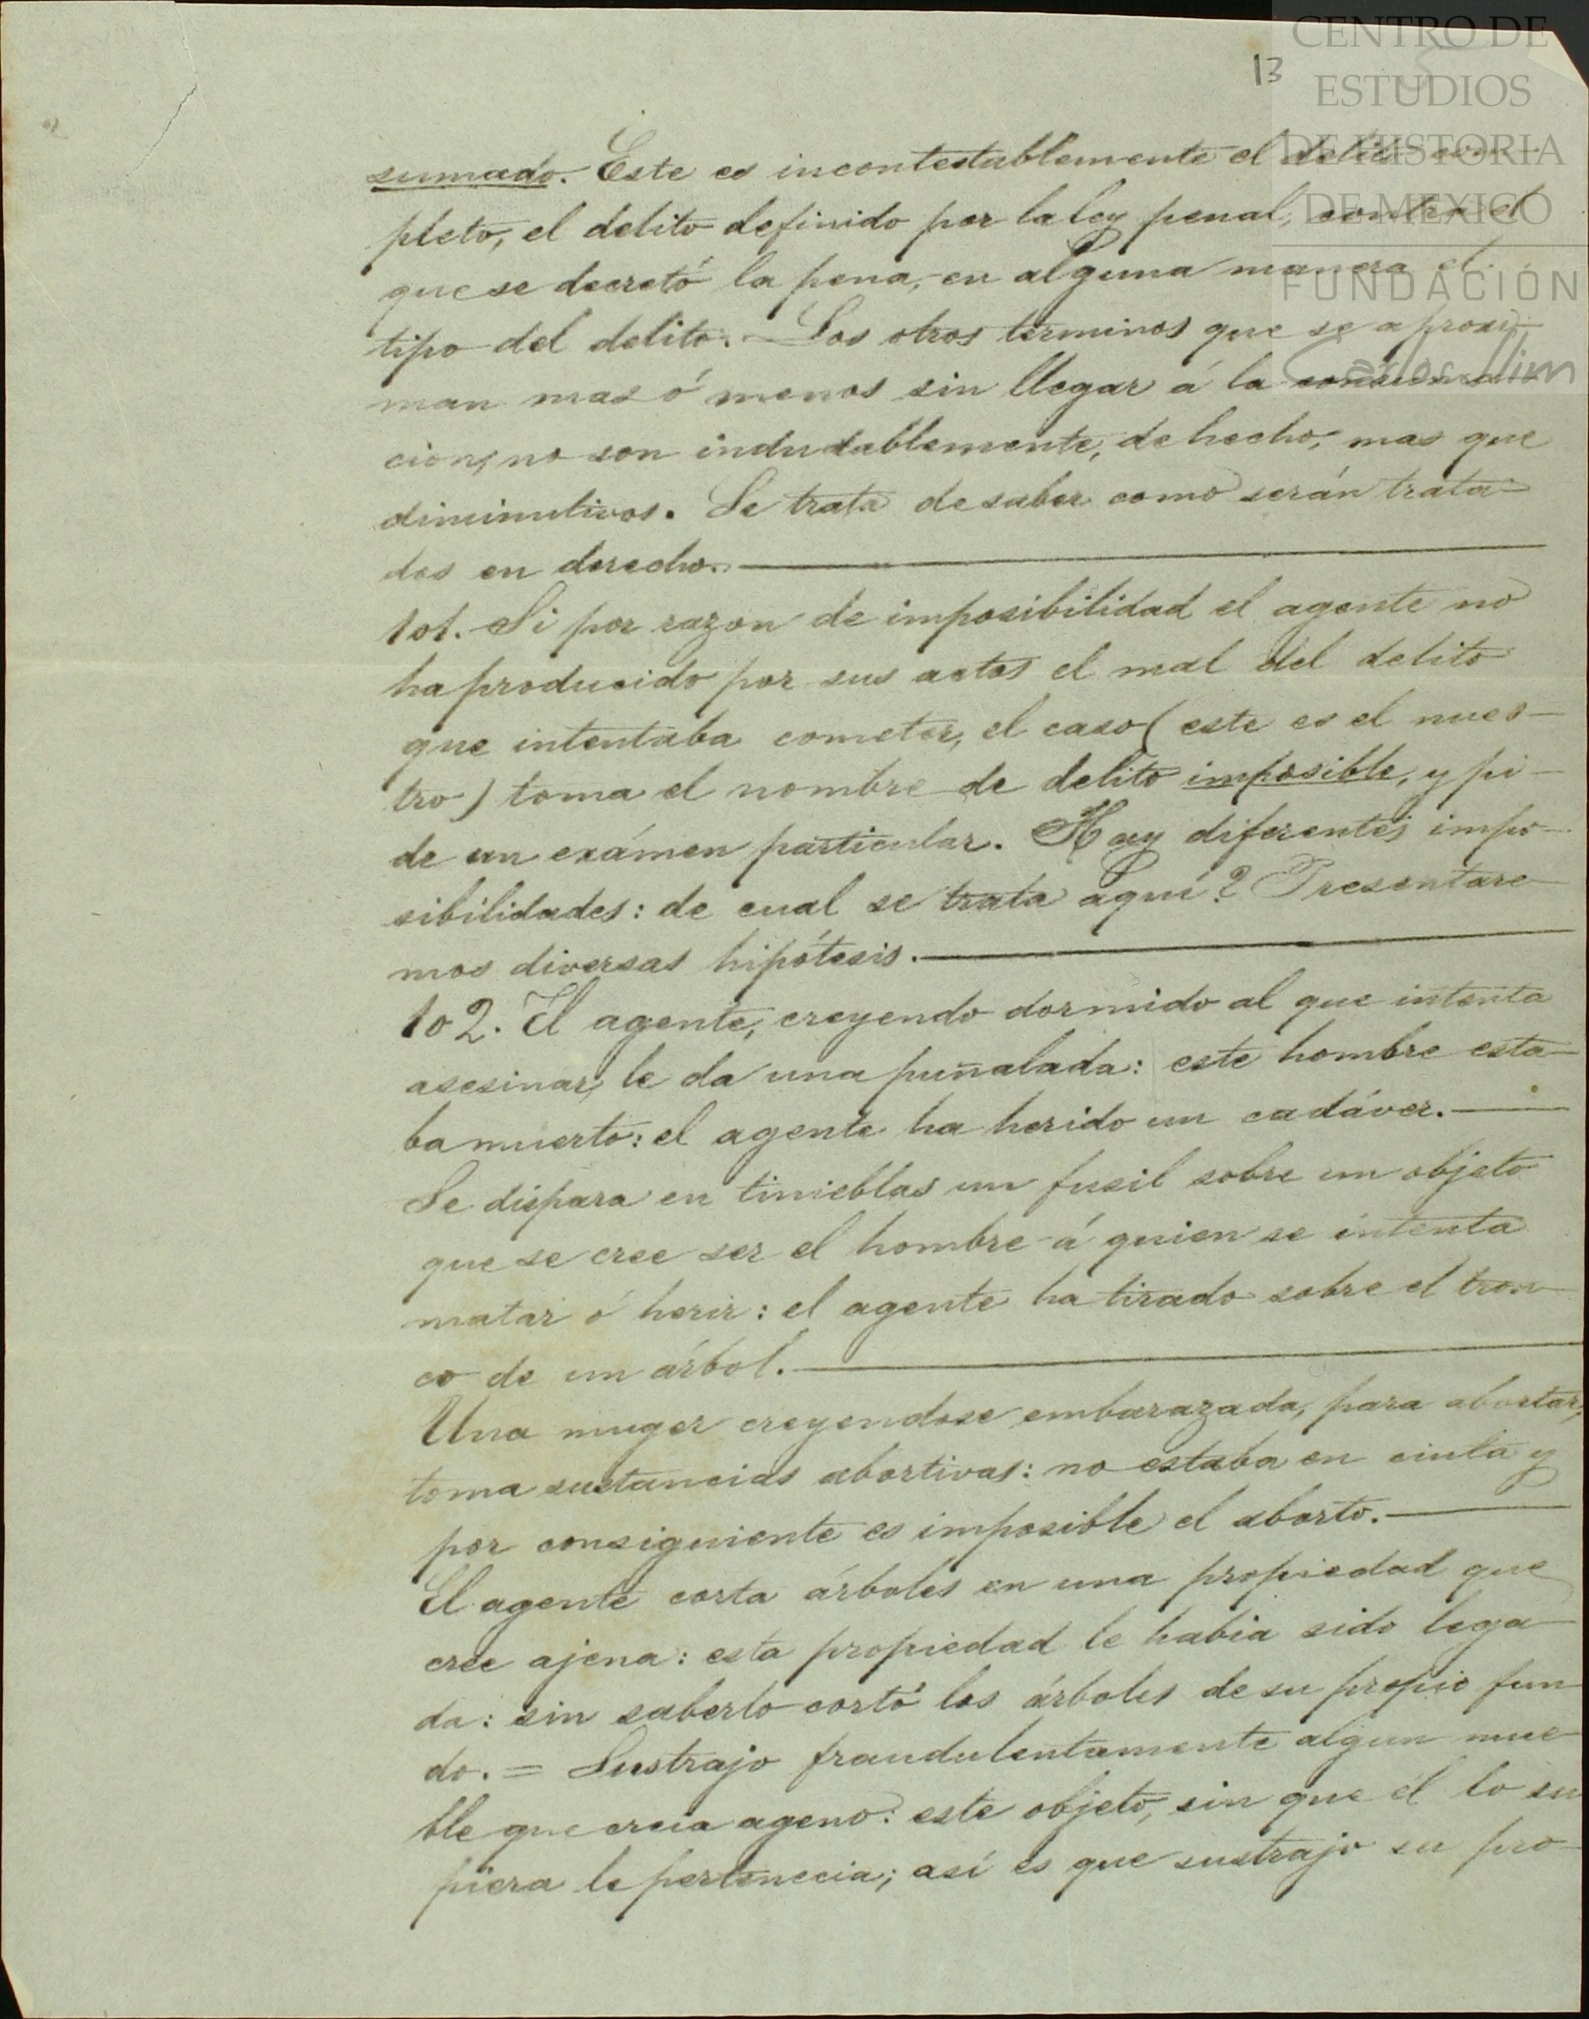 13
CENTRO DE
ESTUDIOS
DE HISTORIA
DE MEXICO
FUNDACIÓN
Carlos Slim
sumado. Este es incontestablemente el delito com-
pleto, el delito definido por la ley penal, contra el
que se decretó la pena, en alguna manera el
tipo del delito. Los otros términos que se aproxi-
man mas ó menos sin llegar á la consuma-
cion, no son indudablemente, de hecho, mas que
diminutivos. Se trata de saber como serán trata-
dos en derecho.
101. Si por razon de imposibilidad el agente no
ha producido por sus actos el mal del delito
que intentaba cometer, el caso (este es el nues-
tro) toma el nombre de delito imposible, y pi-
de un exámen particular. Hay diferentes impo-
sibilidades: de cual se trata aquí? Presentare-
mos diversas hipótesis.
102. El agente, creyendo dormido al que intenta
asesinar, le da una puñalada: este hombre esta-
ba muerto: el agente ha herido un cadáver.
Se dispara en tinieblas un fusil sobre un objeto
que se cree ser el hombre á quien se intenta
matar ó herir: el agente ha tirado sobre el tron-
co de un árbol.
Una muger creyendose embarazada, para abortar,
toma sustancias abortivas: no estaba en cinta y
por consiguiente es imposible el aborto.
El agente corta árboles en una propiedad que
cree ajena: esta propiedad le habia sido lega-
da: sin saberlo cortó los árboles de su propio fun-
do. = Sustrajo fraudulentamente algun mue-
ble que creia ageno: este objeto, sin que él lo su-
piera le pertenecia; así es que sustrajo su pro-